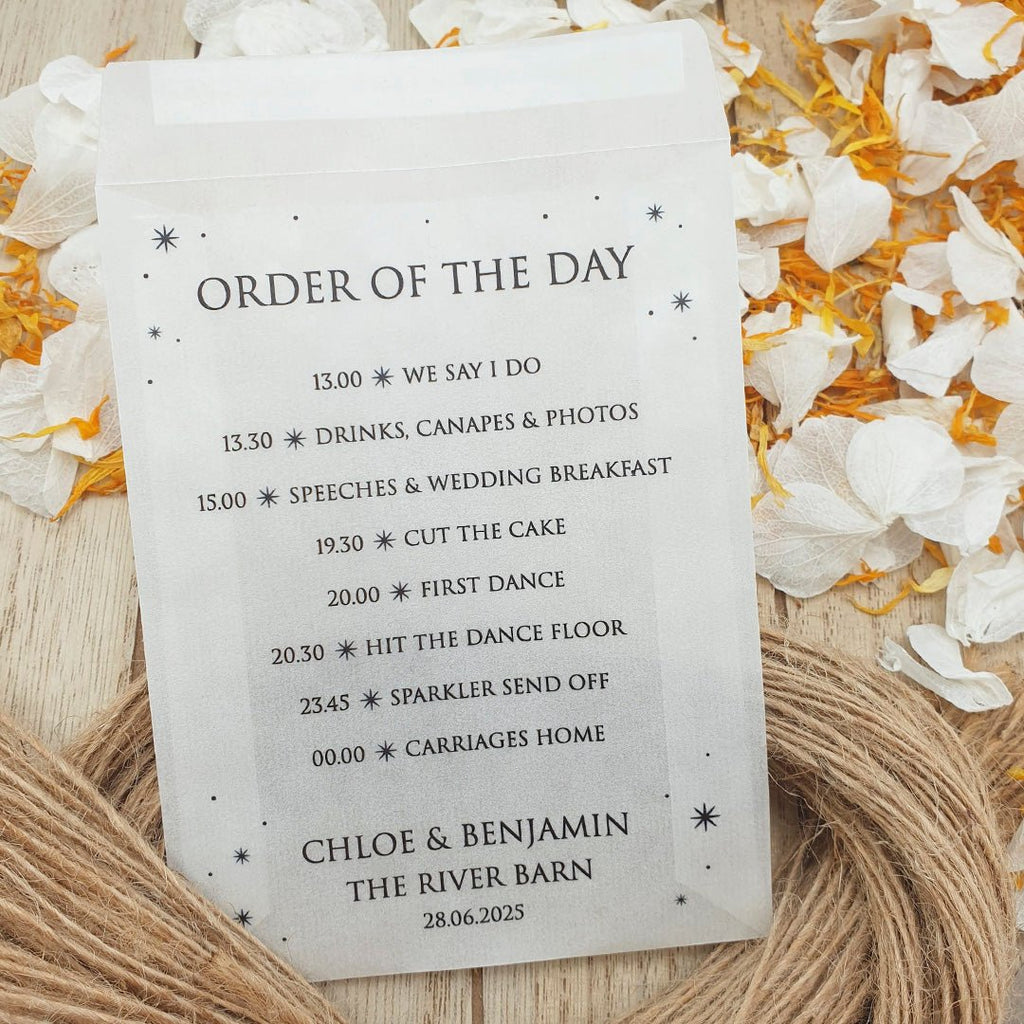 ORDER OF THE DAY
13.00 ✴ WE SAY I DO
13.30 ✴ DRINKS, CANAPES & PHOTOS
15.00 ✴ SPEECHES & WEDDING BREAKFAST
19.30 ✴ CUT THE CAKE
20.00 ✴ FIRST DANCE
20.30 ✴ HIT THE DANCE FLOOR
23.45 ✴ SPARKLER SEND OFF
00.00 ✴ CARRIAGES HOME
CHLOE & BENJAMIN
THE RIVER BARN
28.06.2025